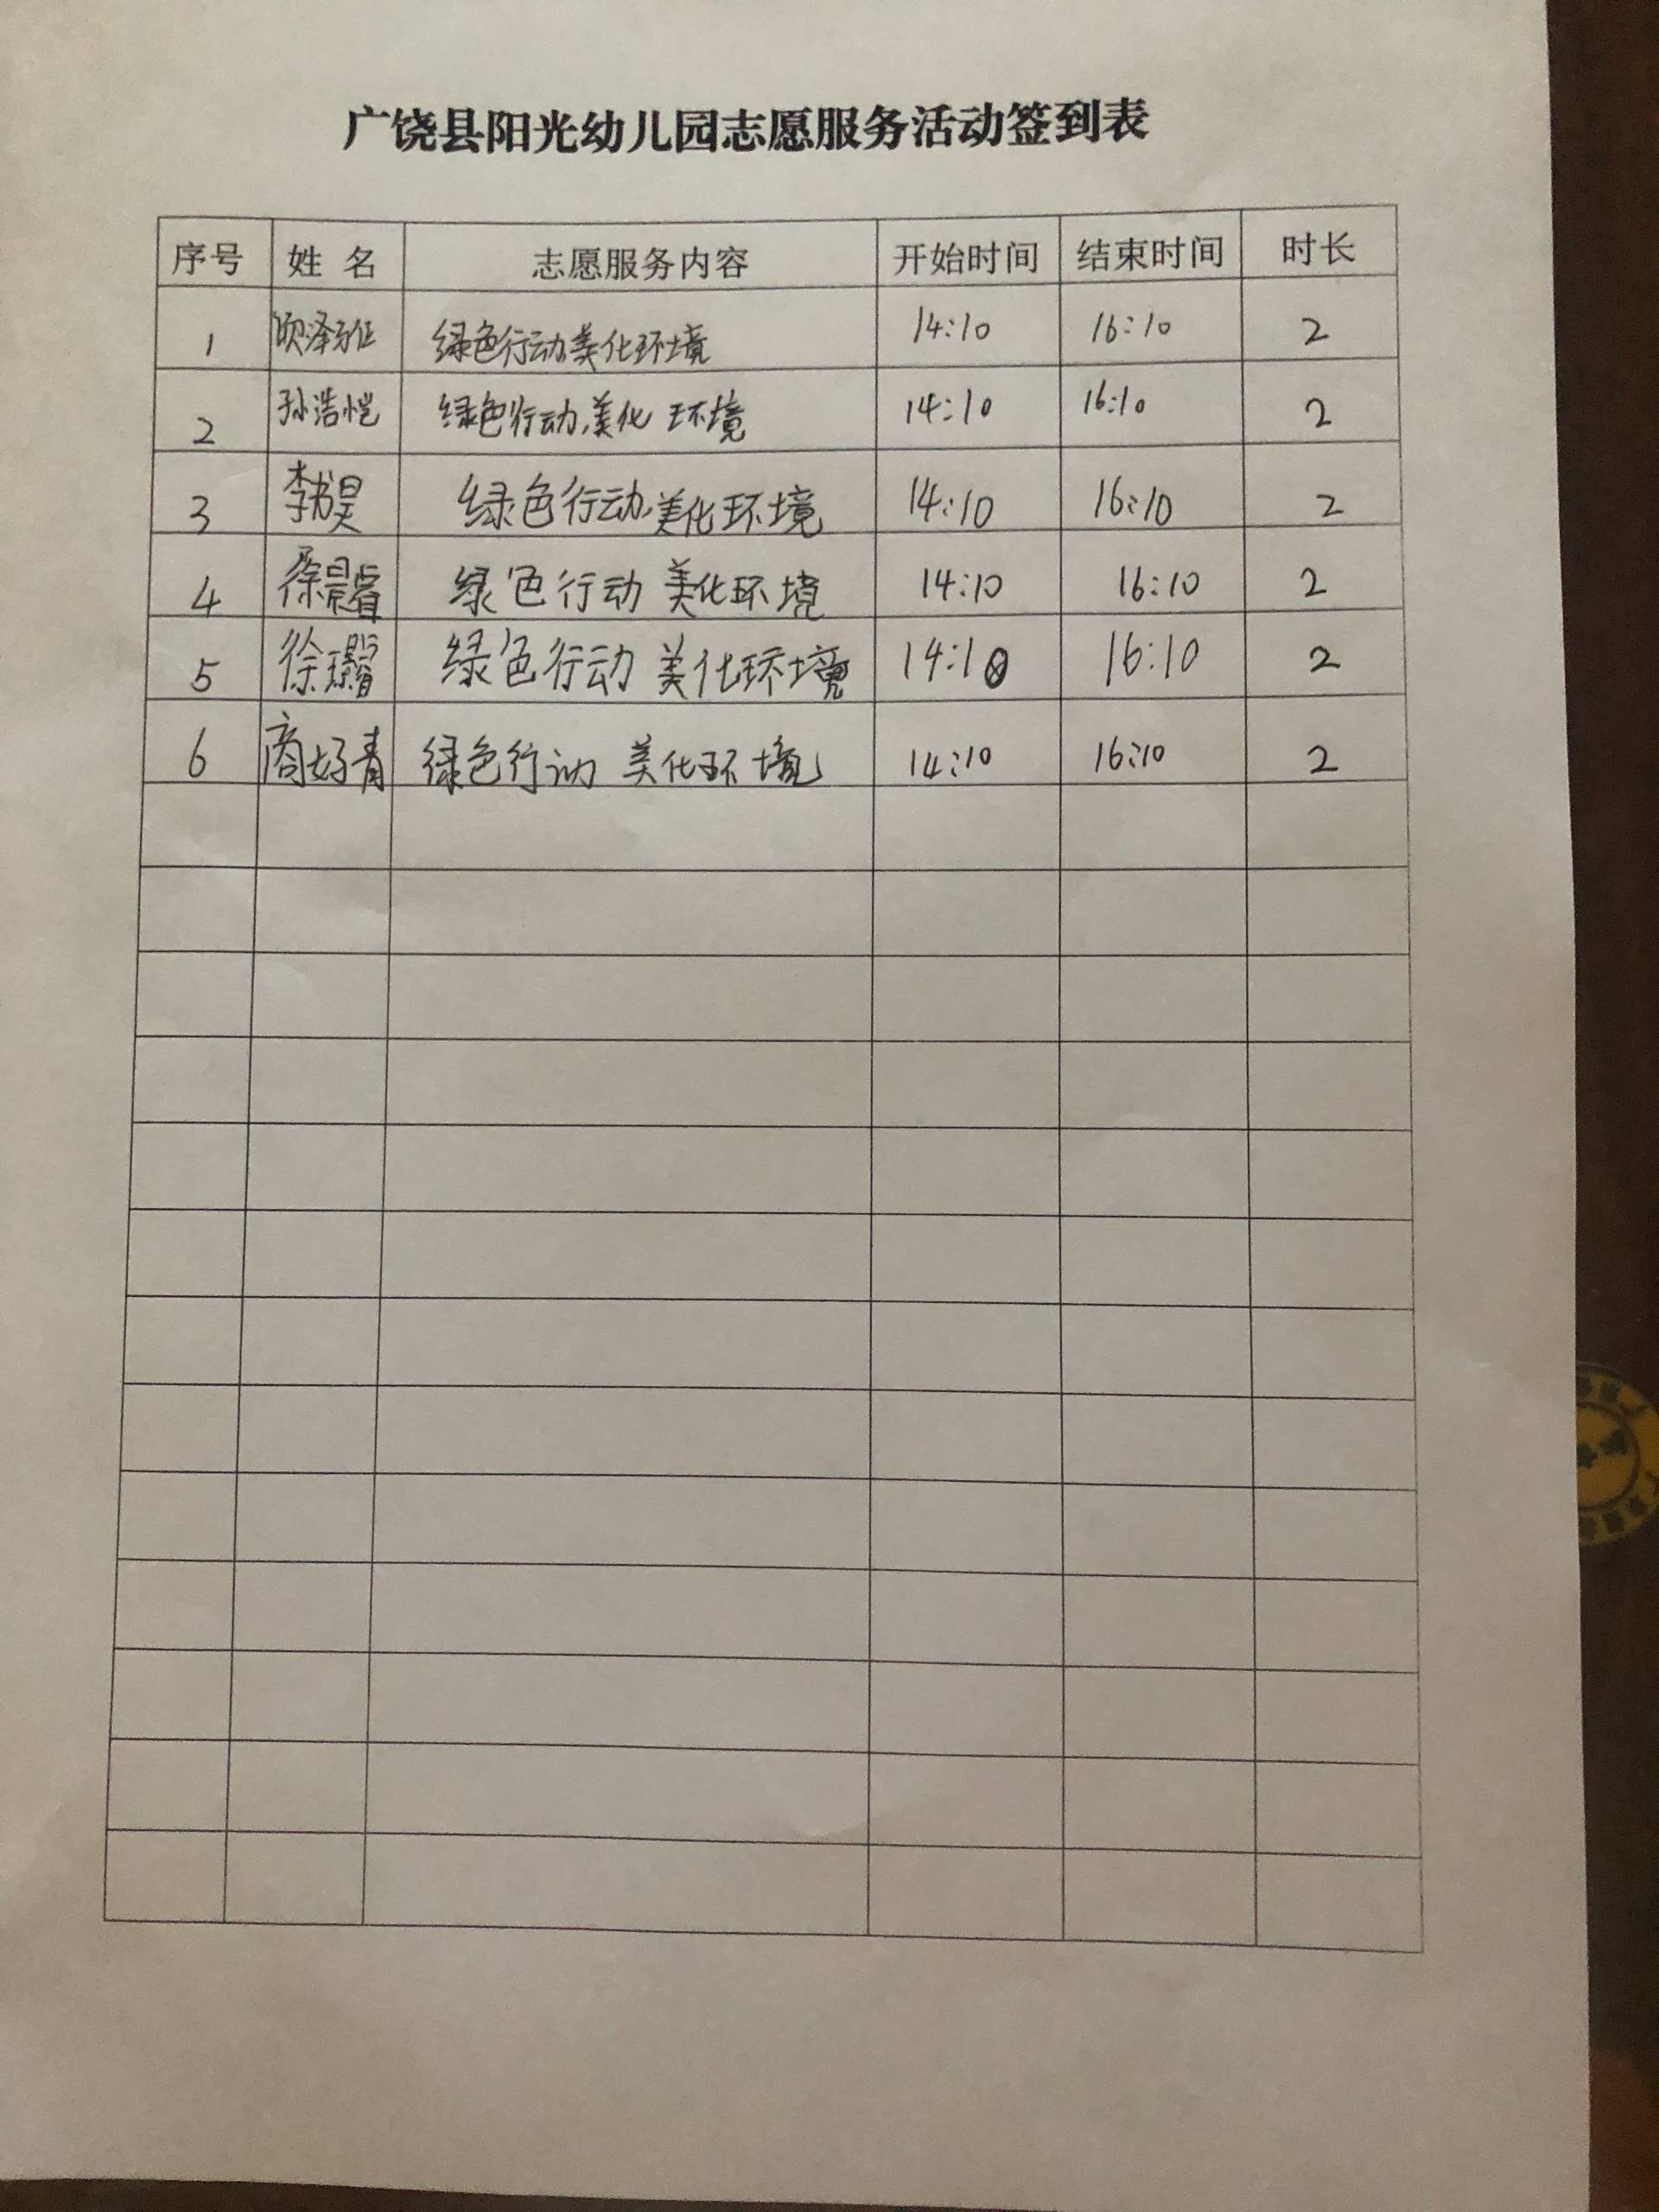 广饶县阳光幼儿园志愿服务活动签到表
序号 姓 名 志愿服务内容 开始时间 结束时间 时长
1 绿色行动美化环境 14:10 16:10 2
2 孙浩恺 绿色行动,美化 环境 14:10 16:10 2
3 李书昊 绿色行动,美化环境 14:10 16:10 2
4 徐景睿 绿色行动 美化环境 14:10 16:10 2
5 徐璟睿 绿色行动 美化环境 14:10 16:10 2
6 商好青 绿色行动 美化环境 14:10 16:10 2